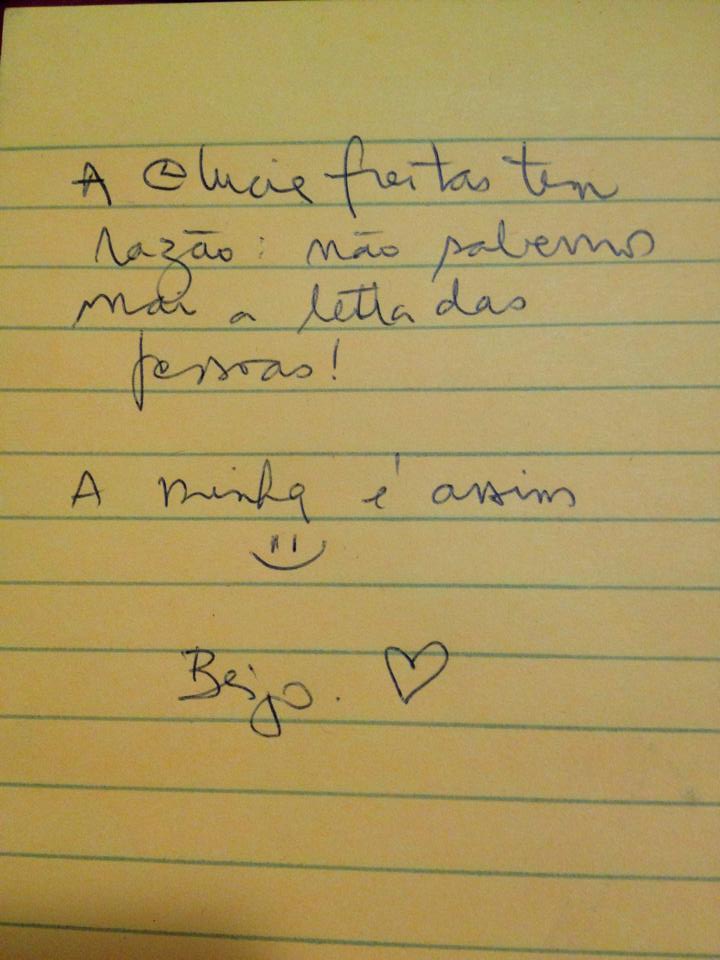 A @luciefreitas tem
razão: não sabemos
mai a letra das
pessoas!
A minha é assim
Beijo.